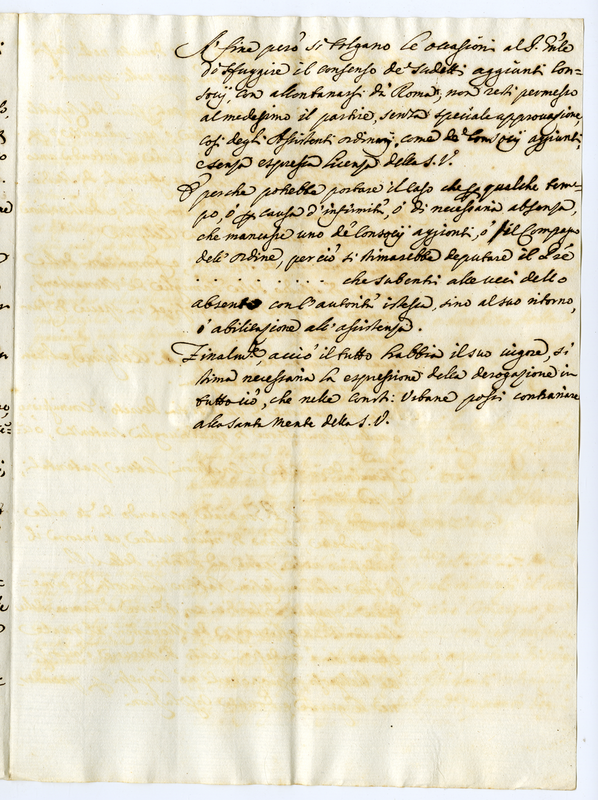 A' fine però si tolgano le occasioni al P. Gn'le
di sfuggire il consenso de' sudetti aggiunti Con=
socij, con allontanarsi da Roma, non resti permesso
al medesimo il partire, senza speciale approvazione,
così degli Assistenti ordinarij, come de' Consocij aggiunti,
e senza espressa licenza della S.V.
E perche potrebbe portare il caso che per qualche tem=
po, ò per causa d'infirmità, ò di necessaria absenza,
che mancasse uno de' Consocij aggionti, ò il Compagno
dell'ordine, perciò si stimarebbe deputare il P're
. . . . . . . . . . che subentri alle veci dello
absente con l'autorità istessa, sino al suo ritorno,
ò abilitazione all'assistenza.
Finalm.te, acciò il tutto habbia il suo vigore, si
stima necessaria la espressione della derogazione in
tutto ciò, che nelle Constit: Urbane possi contrariare
alla santa Mente della S.V.